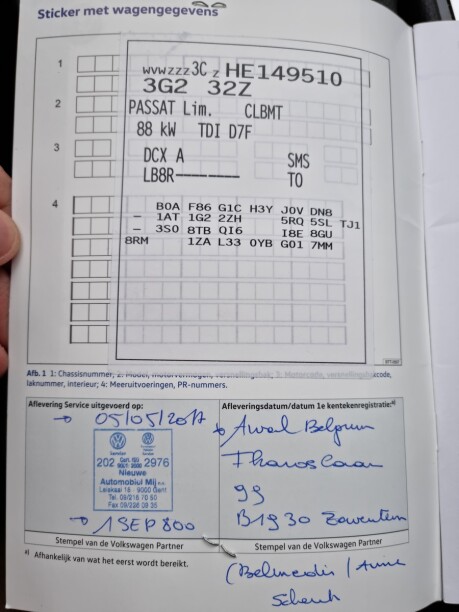 Sticker met wagengegevens
1
WVWZZZ3C Z HE149510
3G2 32Z
2
PASSAT Lim. CLBMT
88 kW TDI D7F
3
DCX A SMS
LB8R-------- TO
4
B0A F86 G1C H3Y J0V DN8
- 1AT 1G2 2ZH 5RQ 5SL TJ1
- 3S0 8TB QI6 I8E 8GU
8RM 1ZA L33 0YB G01 7MM
Afb. 1 1: Chassisnummer; 2: Model, motorvermogen, 
laknummer, interieur; 4: Meeruitvoeringen, PR-nummers.
Aflevering Service uitgevoerd op:
05/05/2017
202 2976
Nieuwe
Automobiel Mij
9000 Gent
1 SEP 800
Stempel van de Volkswagen Partner
Afleveringsdatum/datum 1e kentekenregistratie:a)
Belgium
99
B1930 Zaventem
Stempel van de Volkswagen Partner
a) Afhankelijk van wat het eerst wordt bereikt.